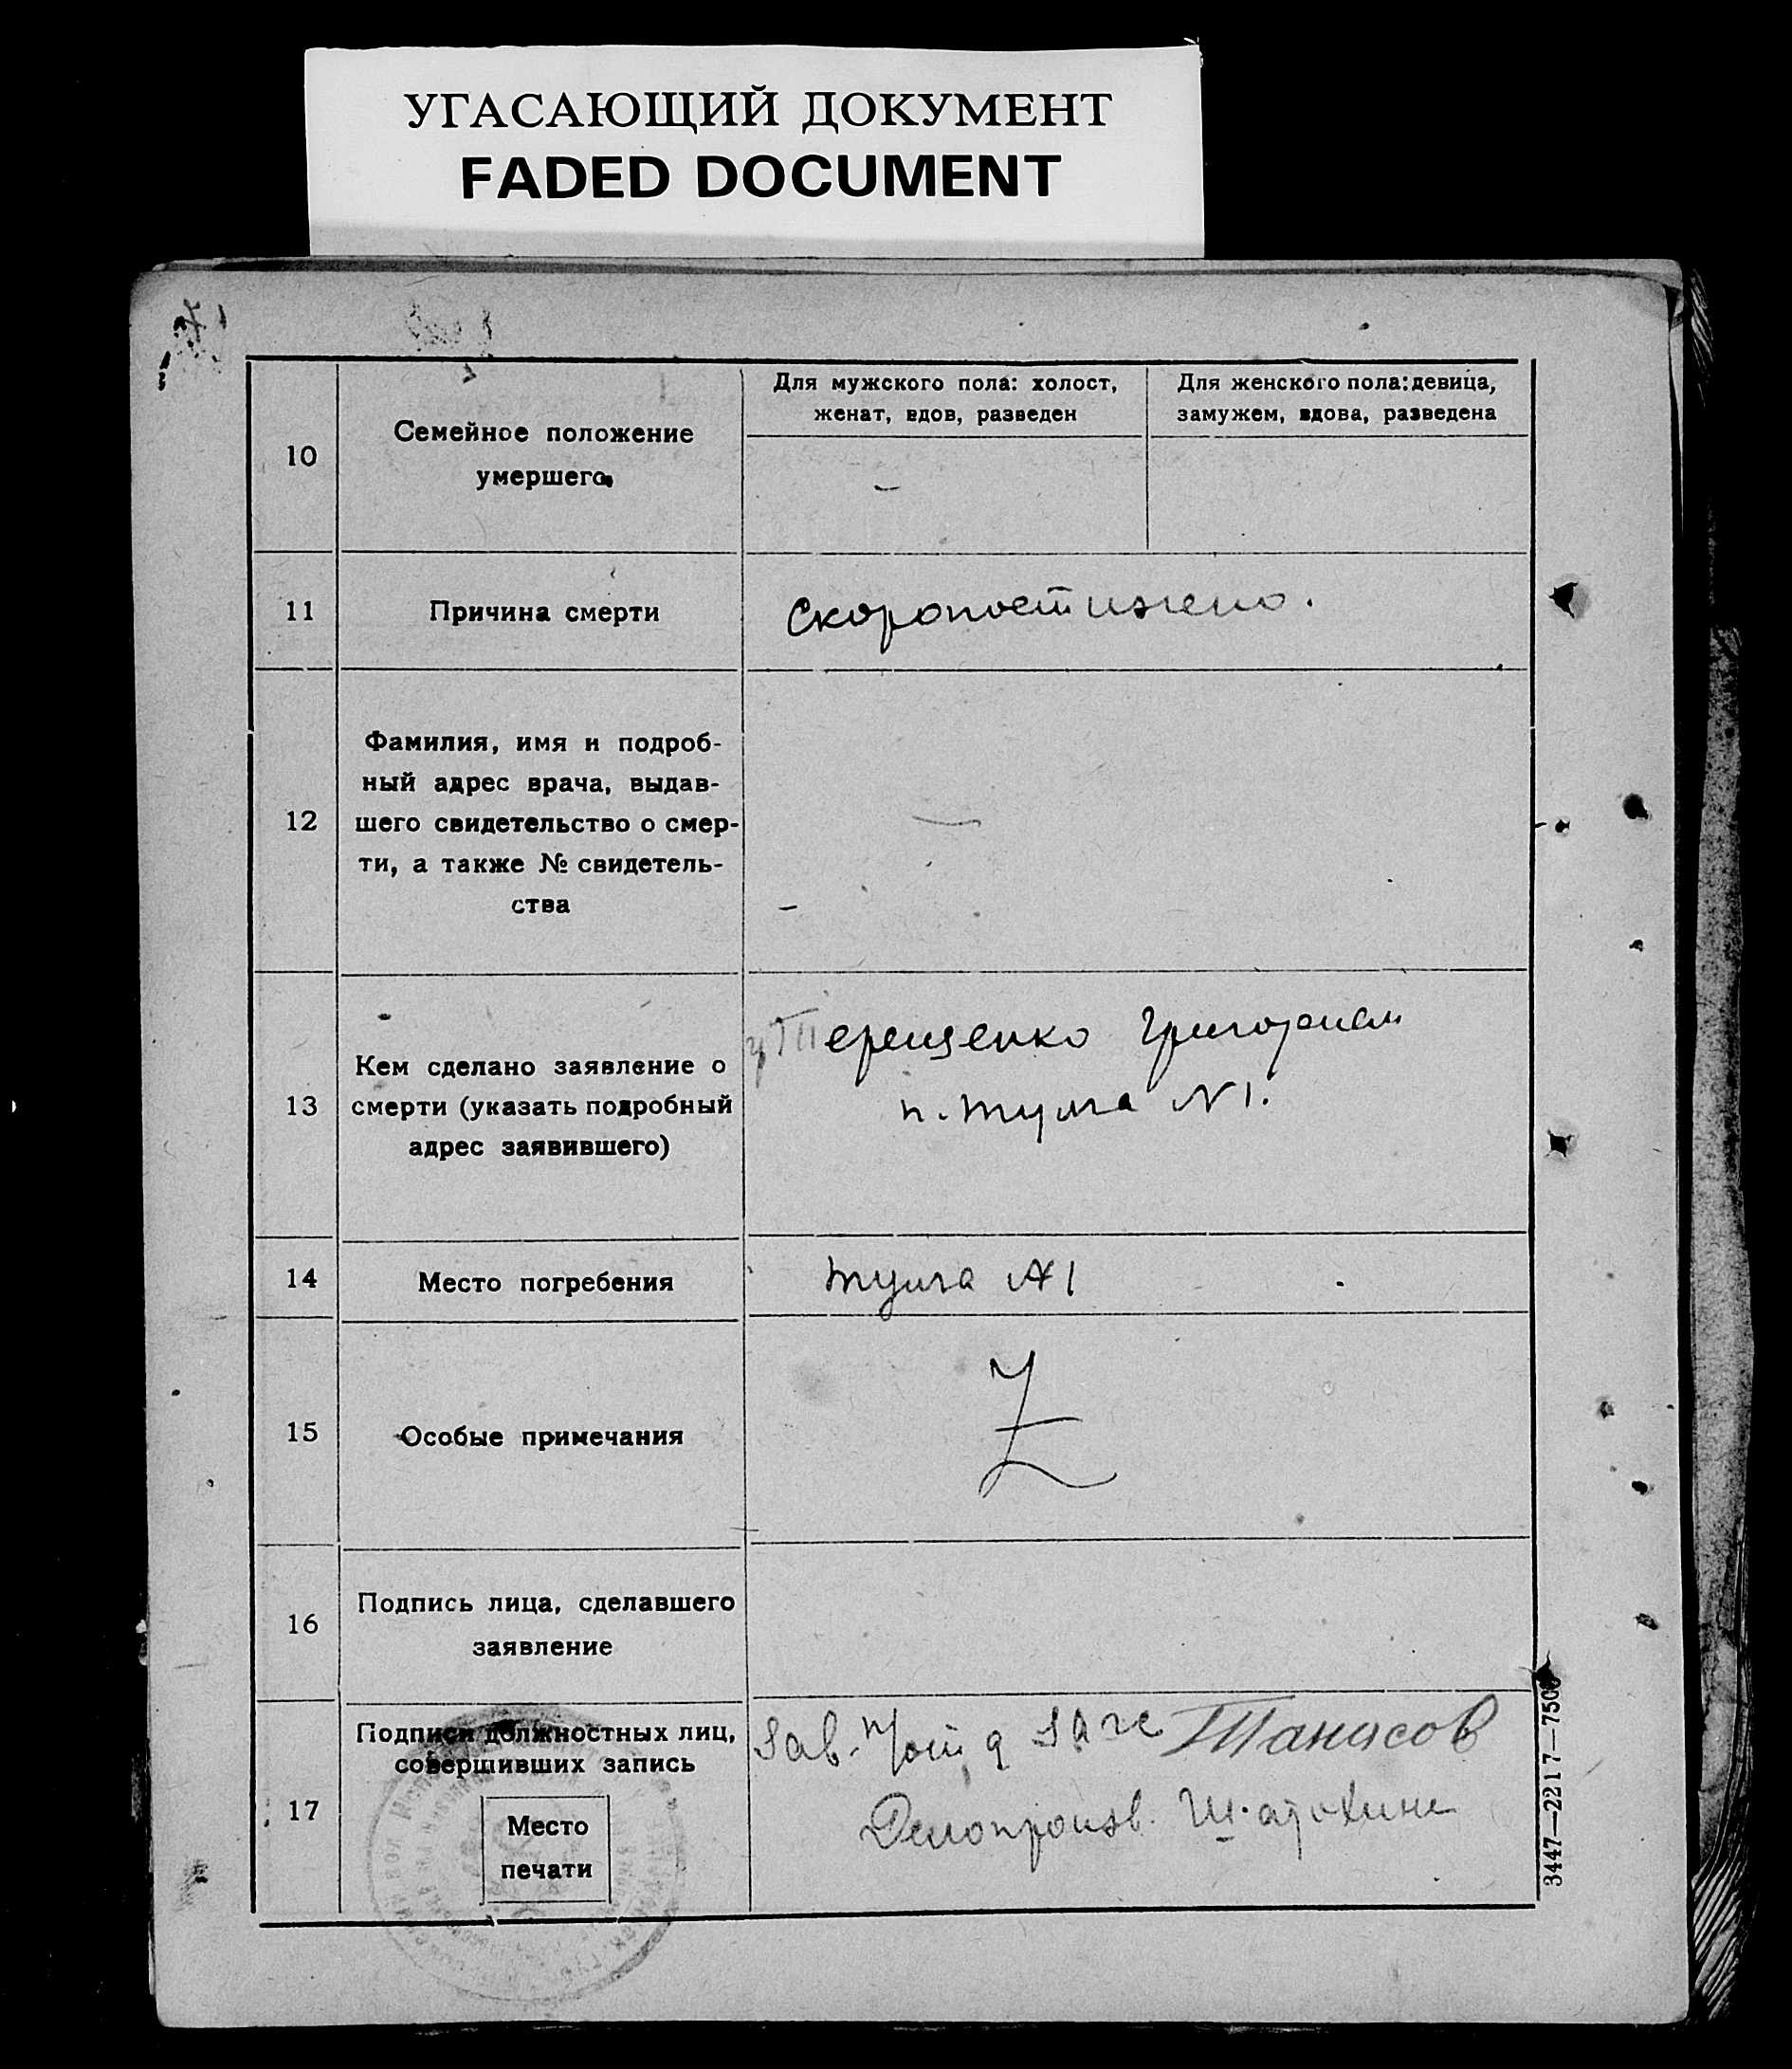 УГАСАЮЩИЙ ДОКУМЕНТ
FADED DOCUMENT
10
Семейное положение
умершего
Для мужского пола: холост,
женат, вдов, разведен
Для женского пола: девица,
замужем, вдова, разведена
—
11
Причина смерти
Скоропостижено.
12
Фамилия, имя и подроб-
ный адрес врача, выдав-
шего свидетельство о смер-
ти, а также № свидетель-
ства
—
13
Кем сделано заявление о
смерти (указать подробный
адрес заявившего)
Терещенко Григорием
п. шулга N1.
14
Место погребения
шулга №1
15
Особые примечания
Z
16
Подпись лица, сделавшего
заявление
17
Подписи должностных лиц,
совершивших запись
Место
печати
Зав. загс Танасов
Делопроизв.
3447—2217—7500